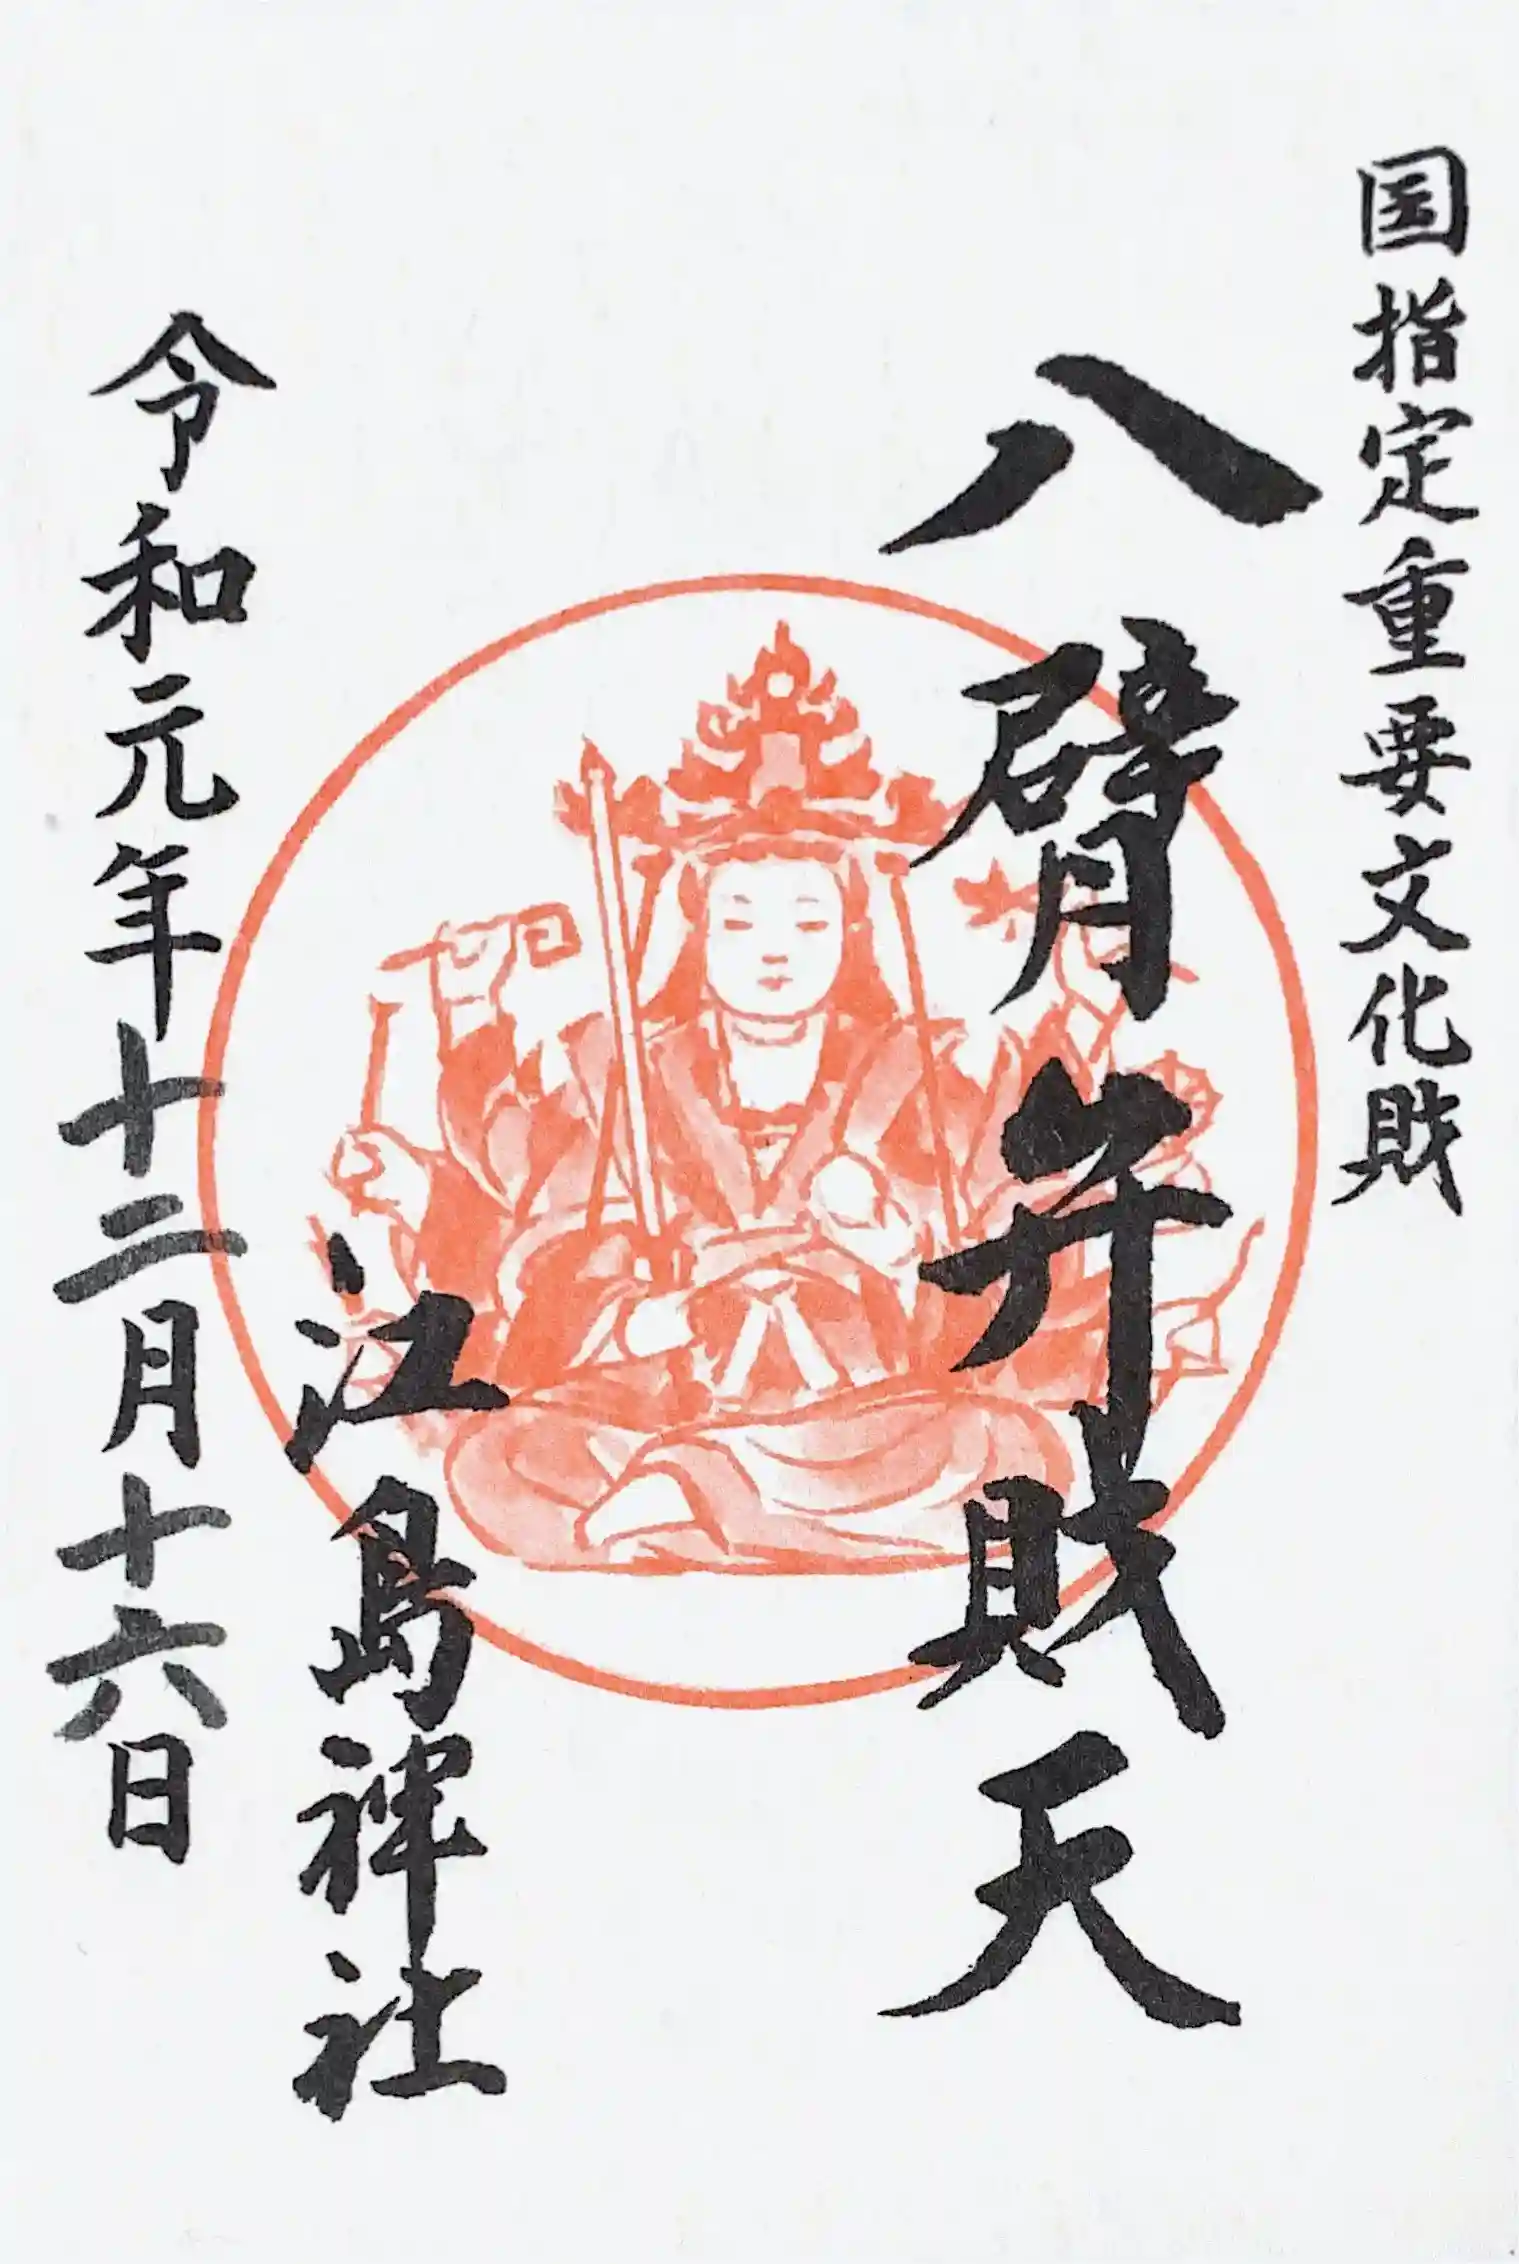 国指定重要文化財
八臂弁財天
江島神社
令和元年十二月十六日